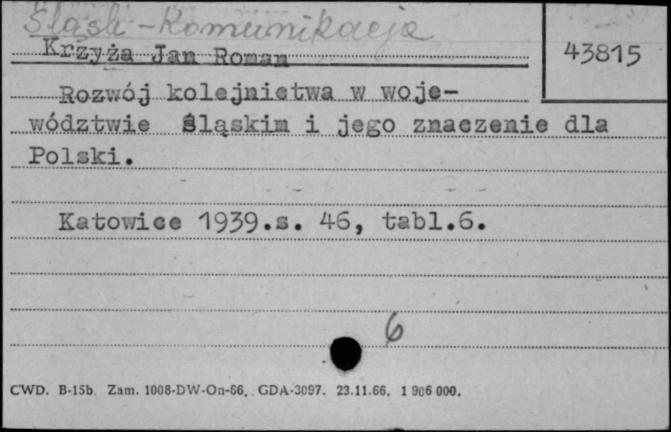 Śląsk - Komunikacja
Krzyża Jan Roman
43815
Rozwój kolejnictwa w woje-
wództwie Śląskim i jego znaczenie dla
Polski.
Katowice 1939.s. 46, tabl.6.
6
CWD. B-15b. Zam. 1008-DW-On-66. GDA-3097. 23.11.66. 1 906 000.